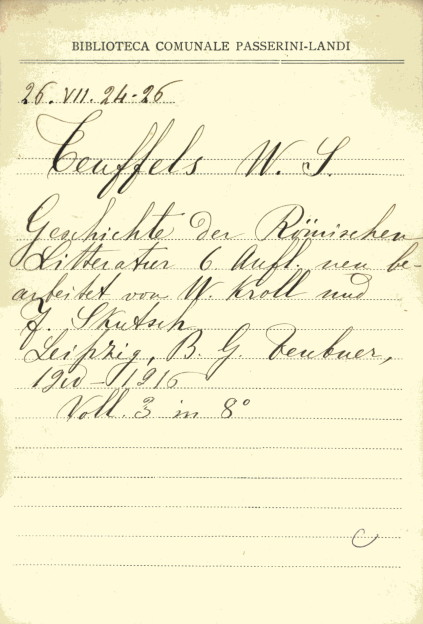 BIBLIOTECA COMUNALE PASSERINI-LANDI
26. VII. 24-26
Teuffels W. S.
Geschichte der Römischen
Litteratur 6 Aufl. neu be-
arbeitet von W. Kroll und
F. Skutsch
Leipzig, B. G. Teubner,
1910-1916
Voll. 3 in 8°
C